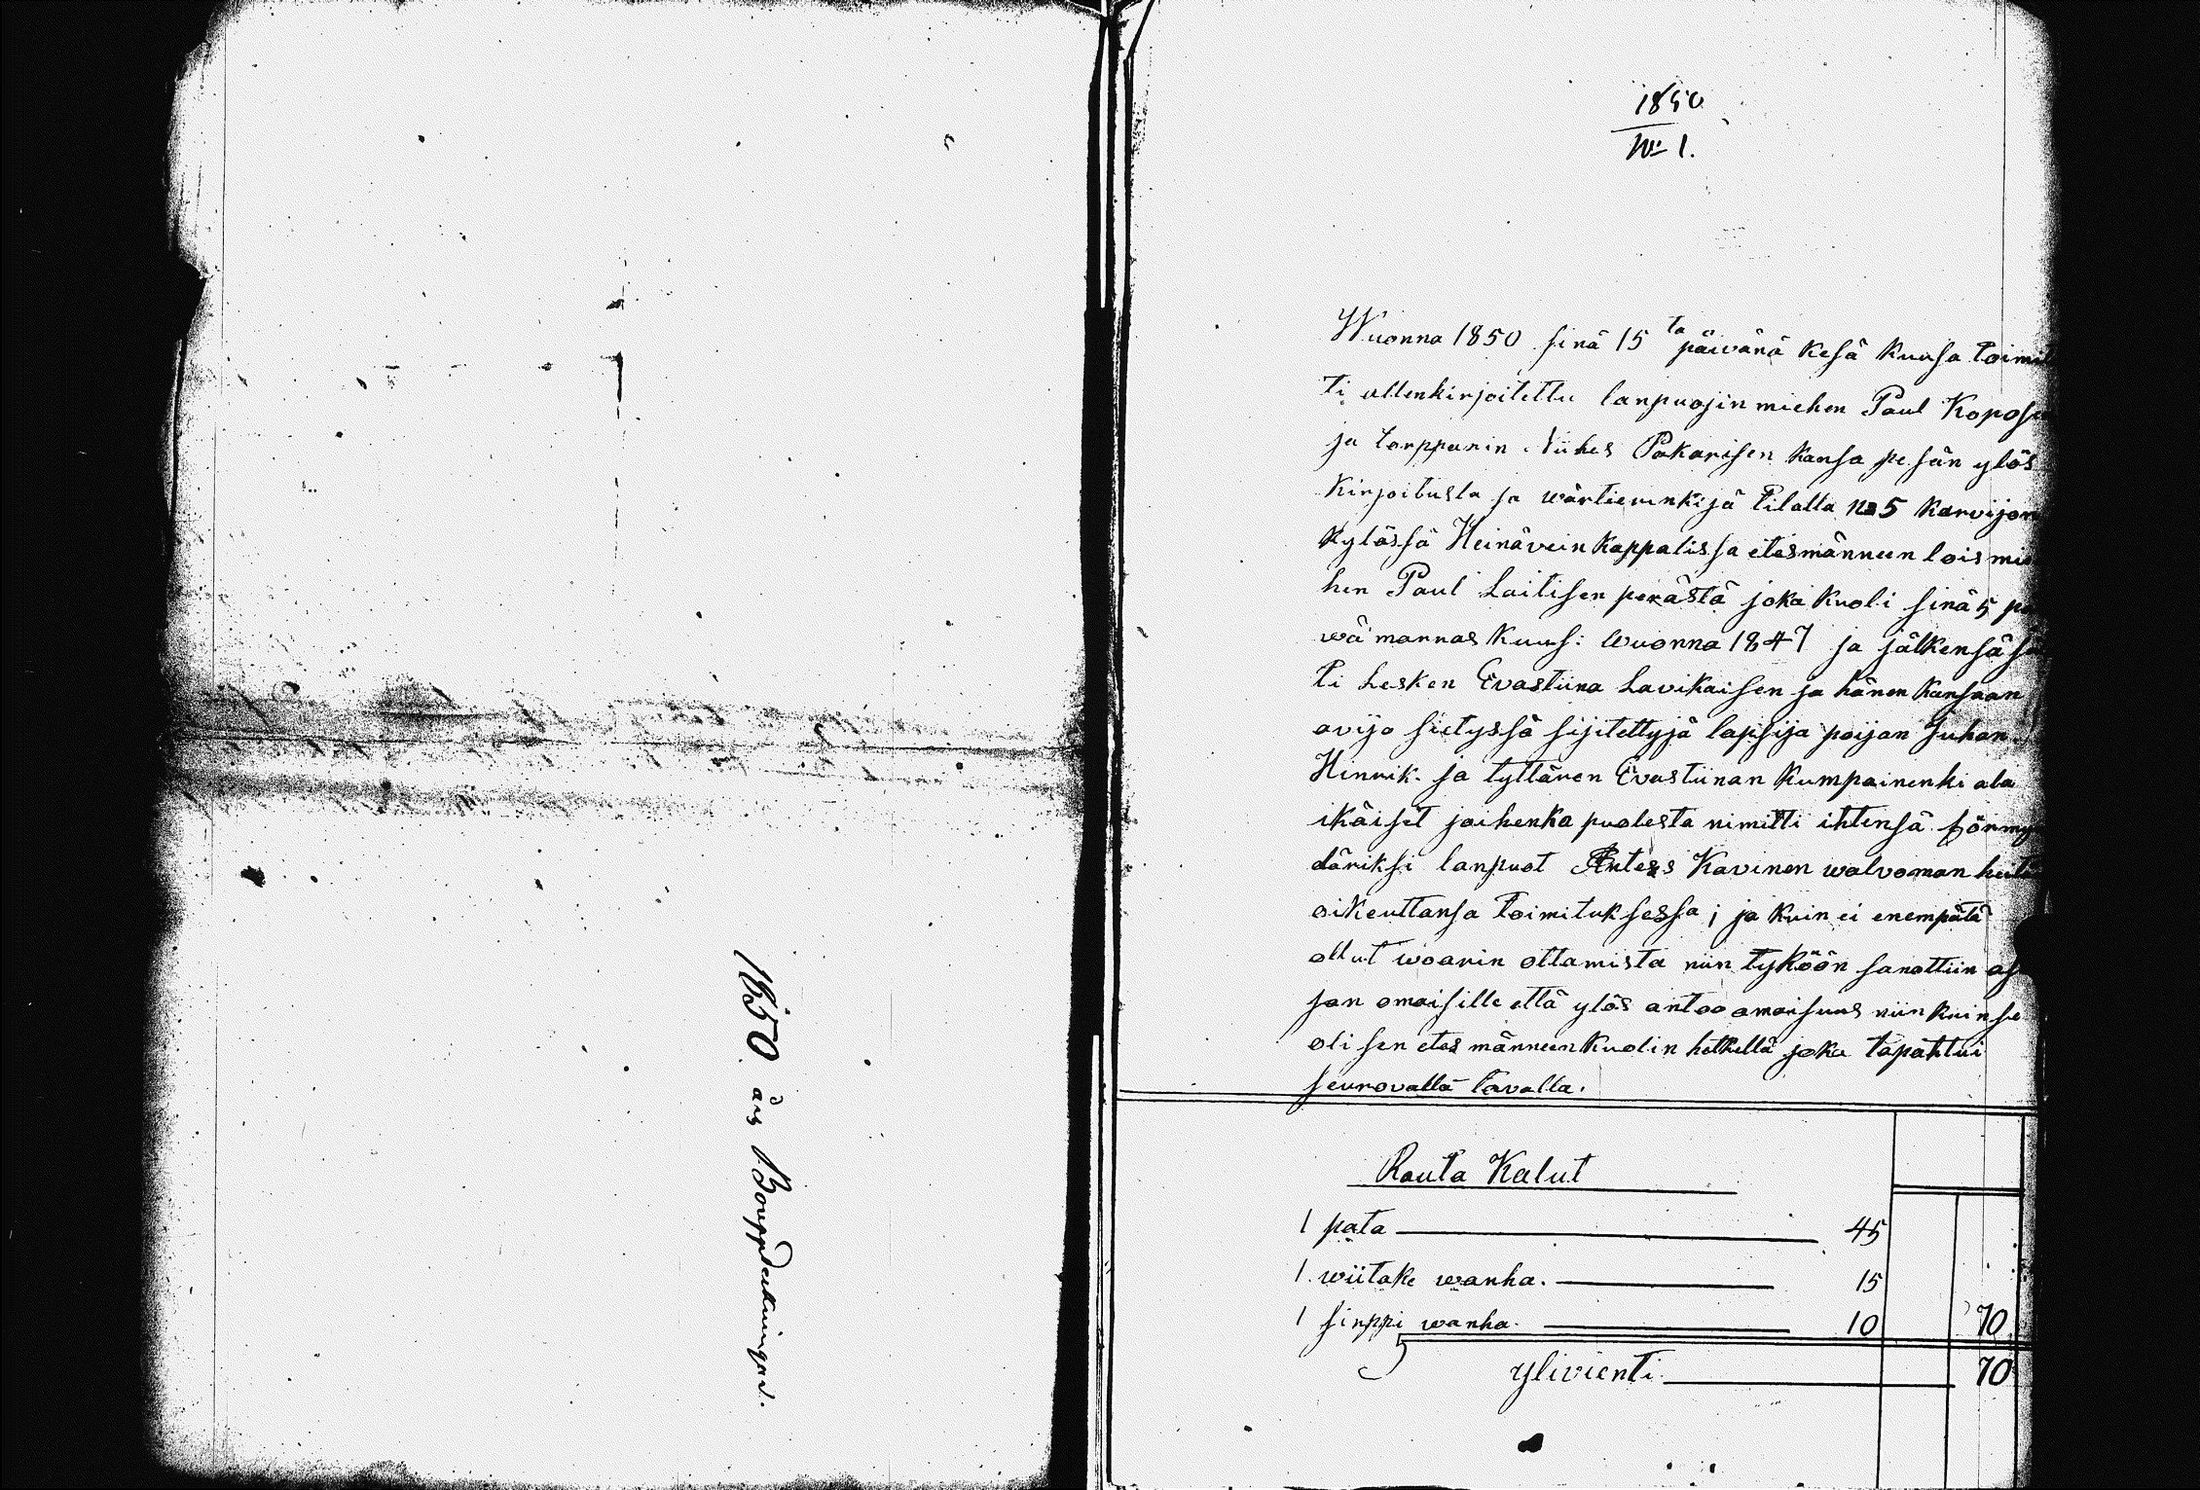 1850 års Bouppteckningar.
1850
No 1.
Wuonna 1850 sinä 15 ta päivänä Kesä Kuusa toimit
ti allenkirjoitettu lanpuojin miehen Paul Kopose
ja torppanin Pakarisen kansa pesän ylös
kirjoitusta ja wärtieerinkijä tilalla No 5 Karvijon
Kylässä Heinävein Kappalissa etesmänneen lois mie
hen Paul Laitisen perästä joka Kuoli sinä 5 pä
wä marras Kuus: Wuonna 1847 ja jälkensä
ti Lesken Evastiina Lavikaisen ja hänen kansaan
avijo sietyssä sijitettyjä lapsija poijan Juhan
Hinrik. ja tyttären Evastiinan Kumpainenki ala
ikäiset joihenka puolesta nimitti ihtensä förmyn
däriksi lanpuot Anters Kavinen walvoman heitä
oikeuttansa toimituksessa; ja Kuin ei enempätä
ollut woarin ottamista niin tyköön sanottiin
jan omaisille että ylös antoo omaisuus niin kuin se
oli sen etes männeen Kuolin hetkellä joka tapahtui
seurovalla tavalla.
Rauta Kalut
1 pata 45
1. wiitake wanha. 15
1 sirppi wanha. 10 70
ylivienti 70